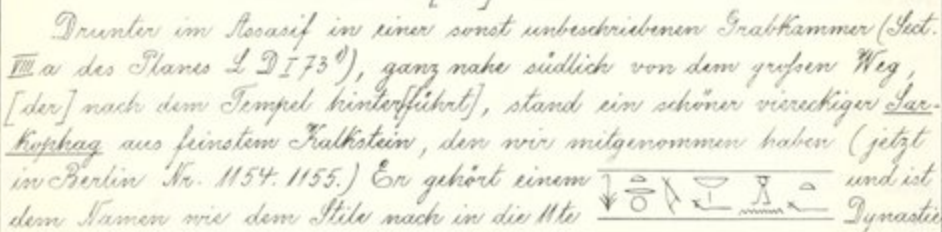 Drunter im Assasif in einer sonst unbeschriebenen Grabkammer (Sect.
VIII a des Planes L D I 73¹⁾), ganz nahe südlich von dem großen Weg,
[der] nach dem Tempel hinter[führt], stand ein schöner viereckiger Sar-
kophag aus feinstem Kalkstein, den wir mitgenommen haben (jetzt
in Berlin Nr. 1154. 1155.) Er gehört einem und ist
dem Namen wie dem Stile nach in die 11te Dynastie